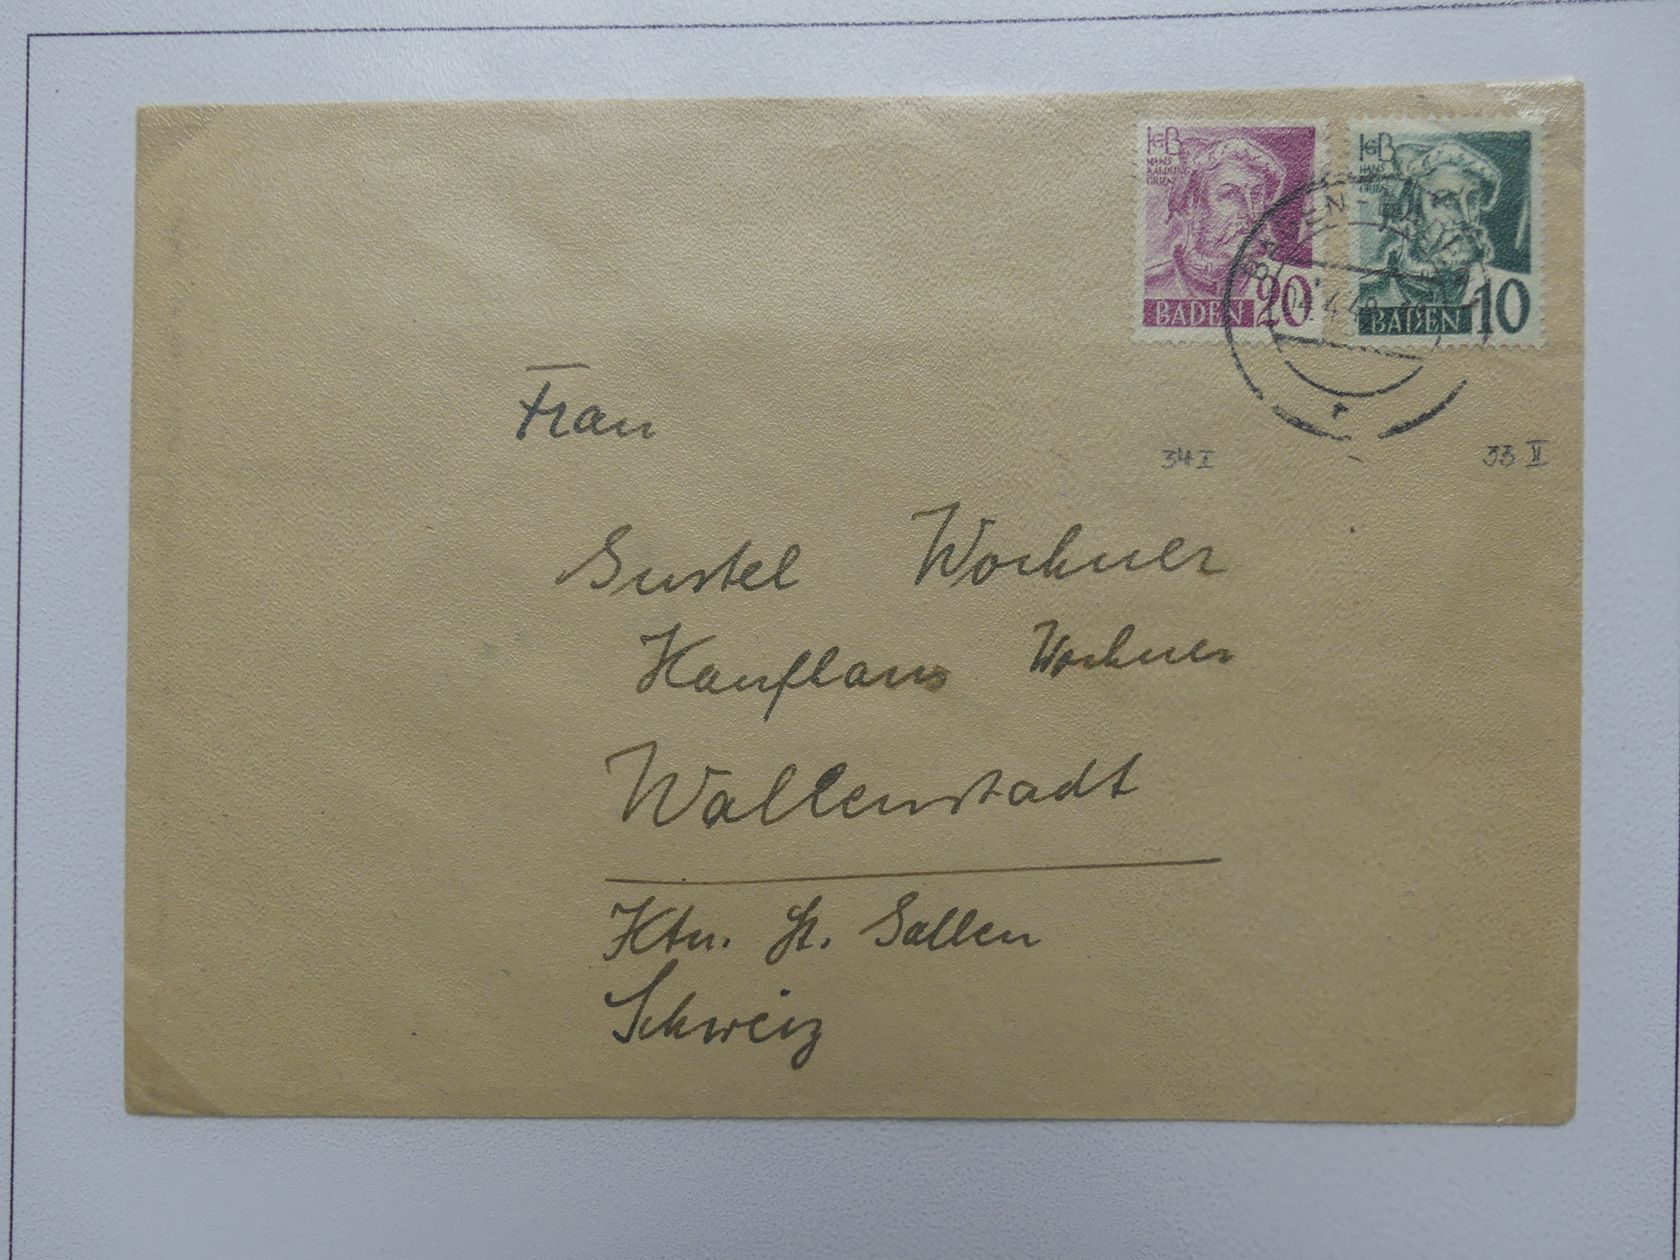 HGB
HANS
BALDUNG
GRIEN
BADEN 20
HGB
HANS
BALDUNG
GRIEN
BADEN 10
Frau
34 I
33 II
Gustel Wochner
Kaufhaus Wochner
Wallenstadt
Ktn. St. Gallen
Schweiz